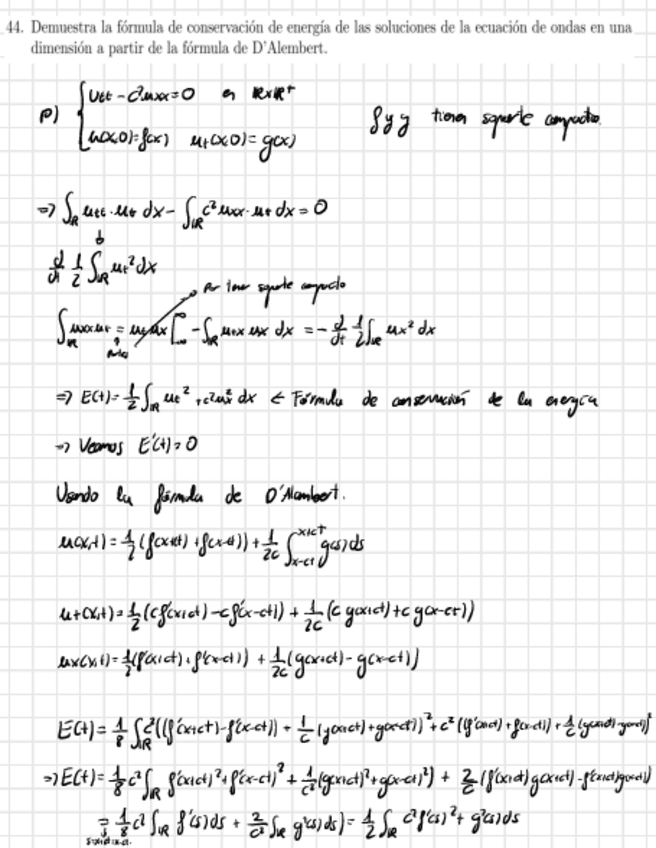 44. Demuestra la fórmula de conservación de energía de las soluciones de la ecuación de ondas en una
dimensión a partir de la fórmula de D'Alembert.
P) { utt - c²uxx = 0 en ℝxℝ⁺
u(x,0)=f(x) ut(x,0)=g(x)
f y g tienen soporte compacto.
⇒ ∫ℝ utt·ut dx - ∫ℝ c² uxx·ut dx = 0
d/dt 1/2 ∫ℝ ut² dx
Por tener soporte compacto
∫ℝ uxx ut = ut ux ]∞-∞ - ∫ℝ utx ux dx = - d/dt 1/2 ∫ℝ ux² dx
Partes
⇒ E(t) = 1/2 ∫ℝ ut² + c²ux² dx ← Fórmula de conservación de la energía
→ Veamos E'(t) = 0
Usando la fórmula de D'Alambert.
u(x,t) = 1/2 (f(x+ct) + f(x-ct)) + 1/2c ∫x-ct x+ct g(s) ds
ut(x,t) = 1/2 (cf'(x+ct) - cf'(x-ct)) + 1/2c (c g(x+ct) + c g(x-ct))
ux(x,t) = 1/2 (f'(x+ct) + f'(x-ct)) + 1/2c (g(x+ct) - g(x-ct))
E(t) = 1/8 ∫ℝ c²((f'(x+ct) - f'(x-ct)) + 1/c (g(x+ct) + g(x-ct)))² + c²((f'(x+ct) + f(x-ct)) + 1/c (g(x+ct) - g(x-ct))²
⇒ E(t) = 1/8 c² ∫ℝ f'(x+ct)² + f'(x-ct)² + 1/c² (g(x+ct)² + g(x-ct)²) + 2/c (f'(x+ct) g(x+ct) -
= 1/8 c² ∫ℝ f'(s) ds + 2/c² ∫ℝ g²(s) ds) = 1/2 ∫ℝ c² f'(s)² + g²(s) ds